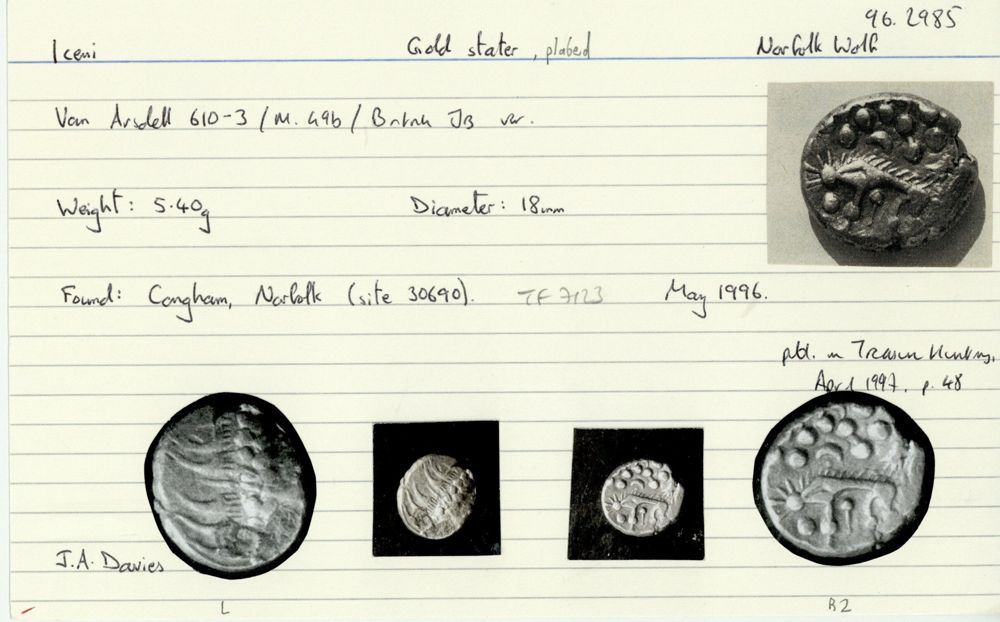 96.2985
Iceni Gold stater, plated Norfolk Wolf
Van Arsdell 610-3 / M. 49b / British JB var.
Weight: 5.40g Diameter: 18mm
Found: Congham, Norfolk (site 30690). TF 7123 May 1996.
publ. in Treasure Hunting,
April 1997, p. 48
J.A. Davies
L R2